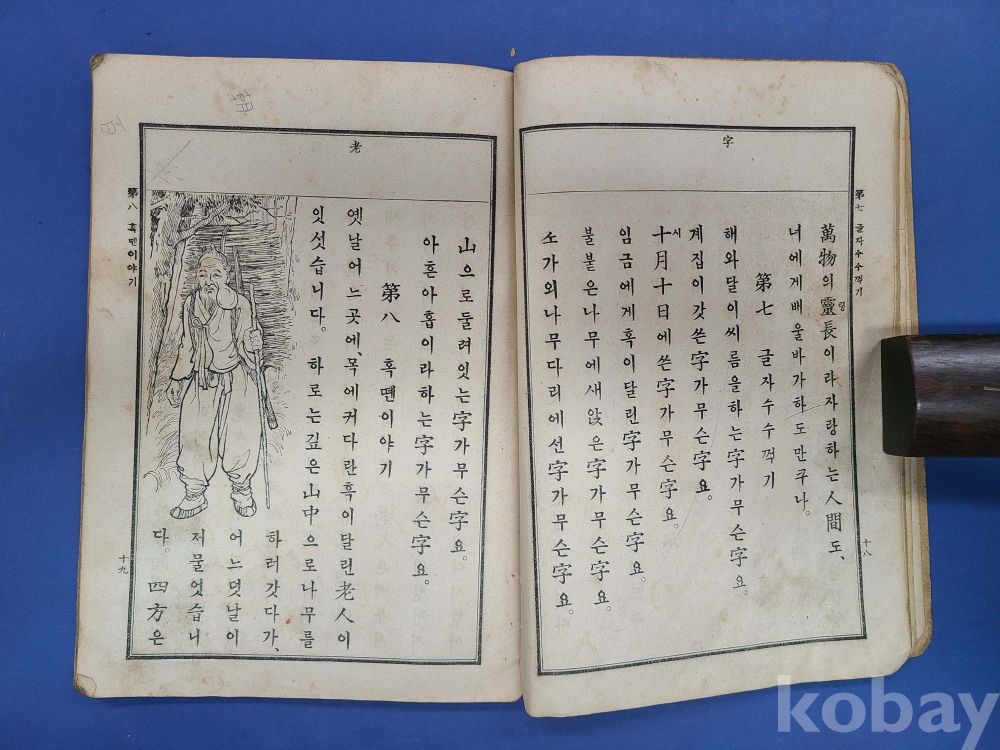 字
第七 글자수수꺽기
萬物의靈長이라자랑하는人間도、
령
너에게배울바가하도만쿠나。
第七 글자수수꺽기
해와달이씨름을하는字가무슨字요。
계집이갓쓴字가무슨字요。
十月十日에쓴字가무슨字요。
시
임금에게혹이달린字가무슨字요。
불붙은나무에새앉은字가무슨字요。
소가외나무다리에선字가무슨字요。
十八
老
山으로둘려잇는字가무슨字요。
아흔아홉이라하는字가무슨字요。
第八 혹뗀이야기
옛날어느곳에、목에커다란혹이달린老人이
잇섯습니다。 하로는깊은山中으로나무를
하러갓다가、
어느덧날이
저물엇습니
다。 四方은
第八 혹뗀이야기
十九
kobay